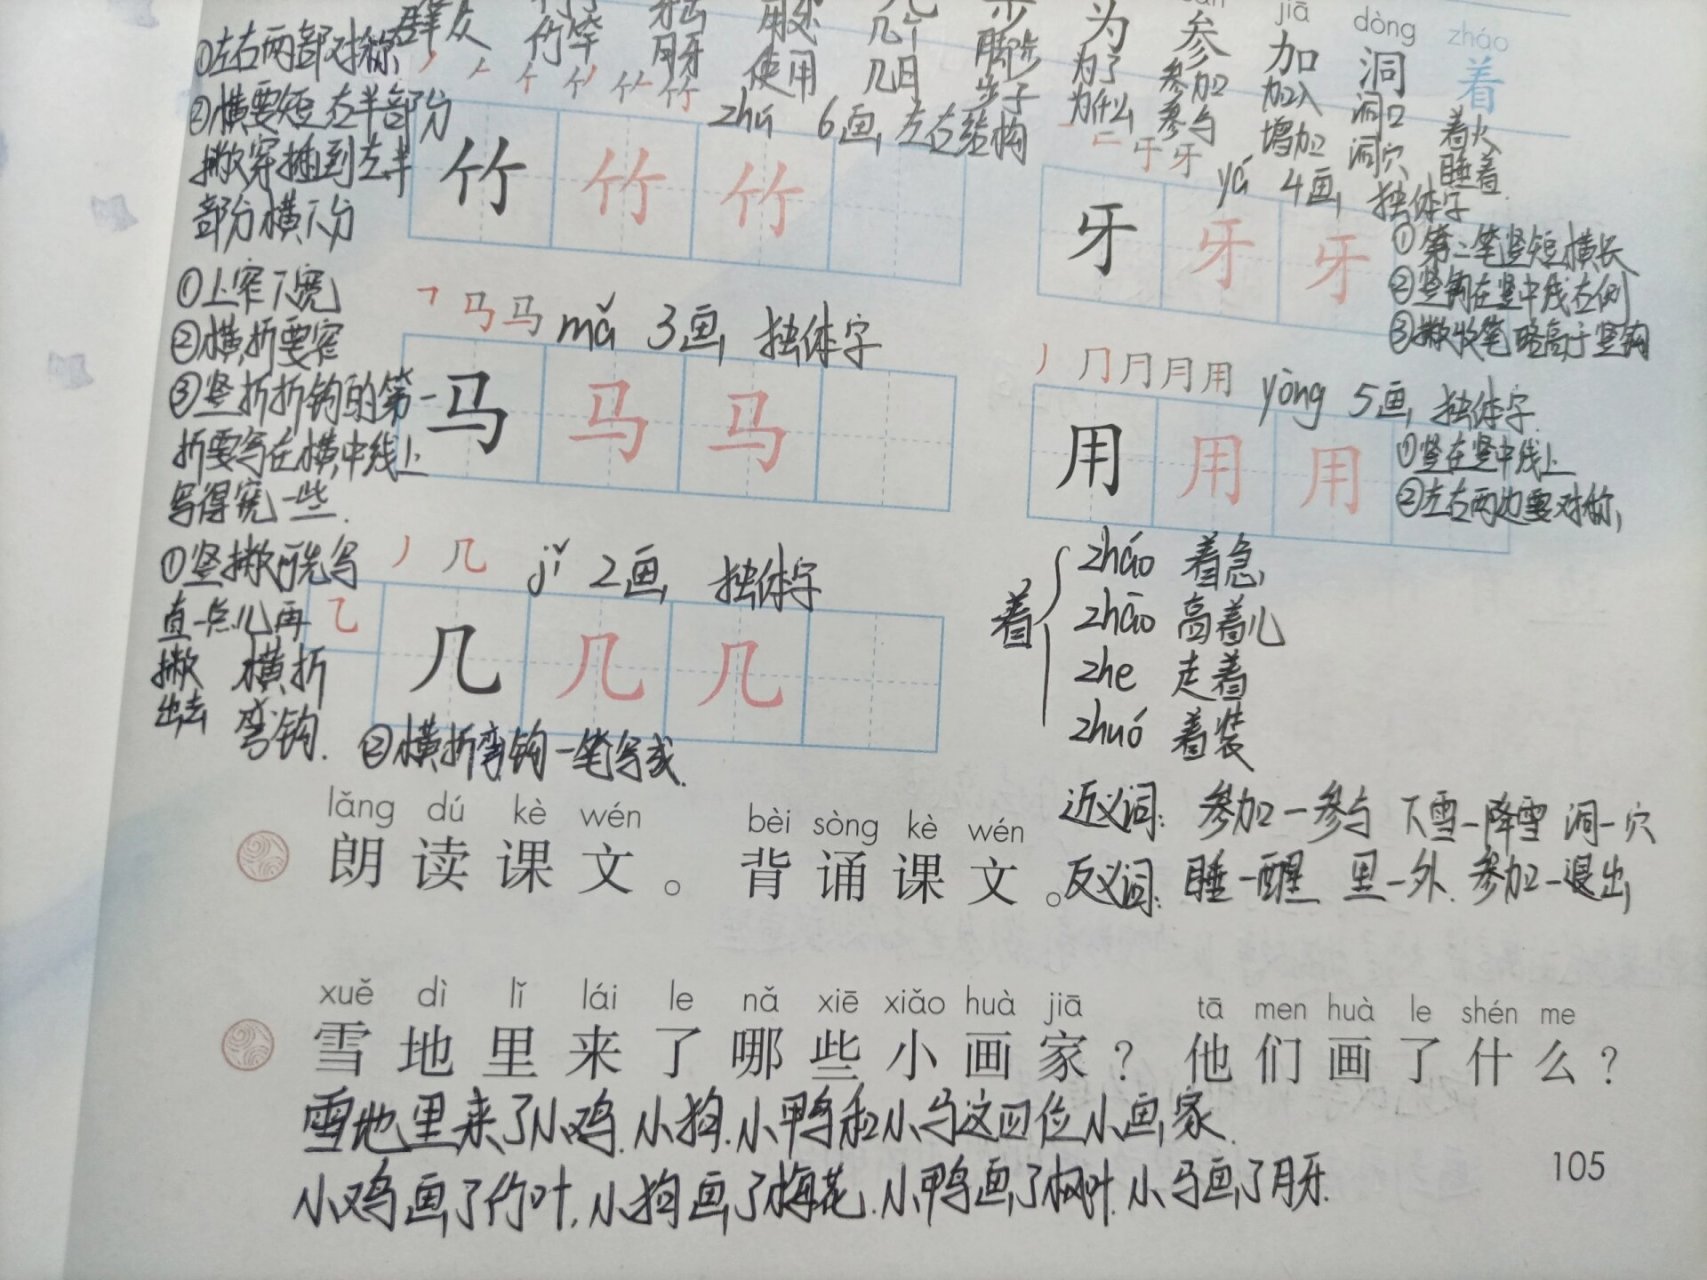 群众 竹 月牙 使用 几个 几日 脚步 步子
为 为了 为什么
参 参加 参与
jiā 加 加入 增加
dòng 洞 洞口 洞穴
zháo 着 着火 睡着
①左右两部对称
②横要短 右半部分
撇穿插到左半
部分横下分
zhú 6画, 左右结构
竹 竹 竹
yá 4画, 独体字
牙 牙 牙
①第二笔竖短, 横长
②竖钩在竖中线右侧
③撇收笔略高于竖钩
①上窄下宽
②横, 折要窄
③竖折折钩的第一
折要写在横中线上
写得宽一些.
mǎ 3画, 独体字
马 马 马
丿 冂 月 月 用
yòng 5画, 独体字.
用 用 用
①竖在竖中线上
②左右两边要对称,
①竖撇, 先写
直一点儿再
撇
出去
横折
弯钩.
丿 几
jǐ 2画, 独体字
乙
几 几 几
②横折弯钩一笔写成.
着
zháo 着急,
zhāo 高着儿
zhe 走着
zhuó 着装
lǎng dú kè wén bèi sòng kè wén
朗读课文。 背诵课文。
近义词: 参加—参与 下雪—降雪 洞—穴
反义词: 睡—醒 里—外. 参加—退出,
xuě dì lǐ lái le nǎ xiē xiǎo huà jiā tā men huà le shén me
雪地里来了哪些小画家? 他们画了什么?
雪地里来了小鸡.小狗.小鸭和小马这四位小画家.
小鸡画了竹叶,小狗画了梅花.小鸭画了枫叶.小马画了月牙.
105